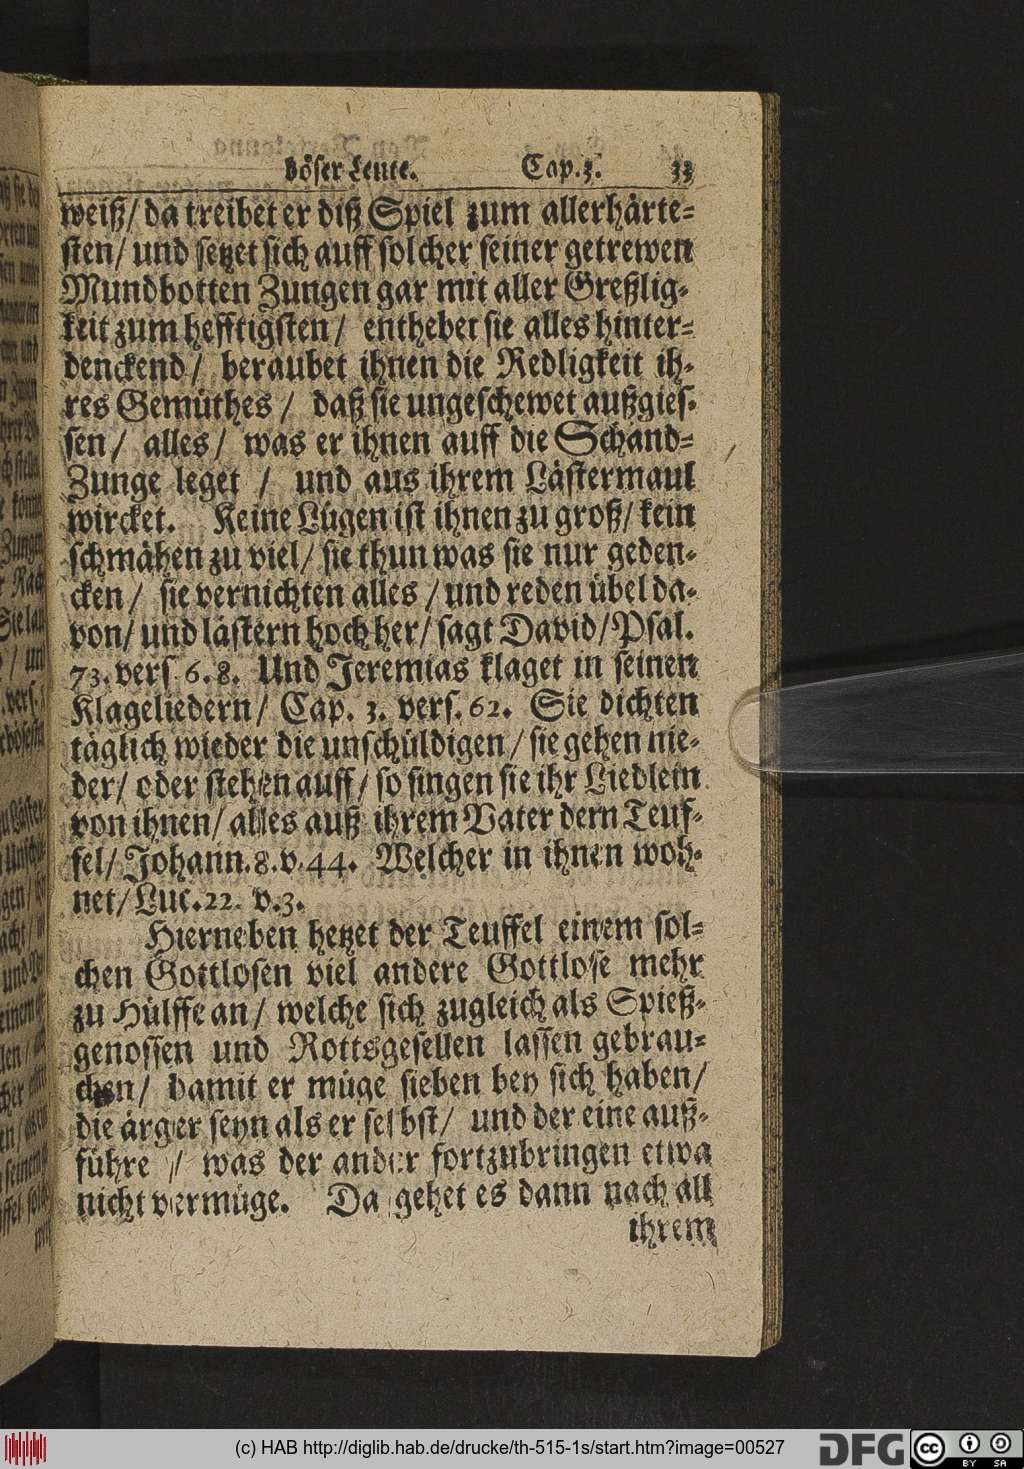 böser Leute. Cap. 3. 33
weiß/ da treibet er diß Spiel zum allerhärte-
sten/ und setzet sich auff solcher seiner getrewen
Mundbotten Zungen gar mit aller Greßlig-
keit zum hefftigsten/ enthebet sie alles hinter-
denckend/ beraubet ihnen die Redligkeit ih-
res Gemüthes/ daß sie ungeschewet außgies-
sen/ alles/ was er ihnen auff die Schand-
Zunge leget / und aus ihrem Lästermaul
wircket. Keine Lügen ist ihnen zu groß/ kein
schmähen zu viel/ sie thun was sie nur geden-
cken/ sie vernichten alles/ und reden übel da-
von/ und lästern hoch her/ sagt David/ Psal.
73. vers 6. 8. Und Jeremias klaget in seinen
Klageliedern/ Cap. 3. vers. 62. Sie dichten
täglich wieder die unschüldigen/ sie gehen nie-
der/ oder stehen auff/ so singen sie ihr Liedlein
von ihnen/ alles auß ihrem Vater dem Teuf-
fel/ Johann. 8. v. 44. Welcher in ihnen woh-
net/ Luc. 22. v. 3.
Hierneben hetzet der Teuffel einem sol-
chen Gottlosen viel andere Gottlose mehr
zu Hülffe an/ welche sich zugleich als Spieß-
genossen und Rottsgesellen lassen gebrau-
chen/ damit er müge sieben bey sich haben/
die ärger seyn als er selbst/ und der eine auß-
führe / was der ander fortzubringen etwa
nicht vermüge. Da gehet es dann nach all
ihrem
(c) HAB http://diglib.hab.de/drucke/th-515-1s/start.htm?image=00527
DFG
cc BY SA